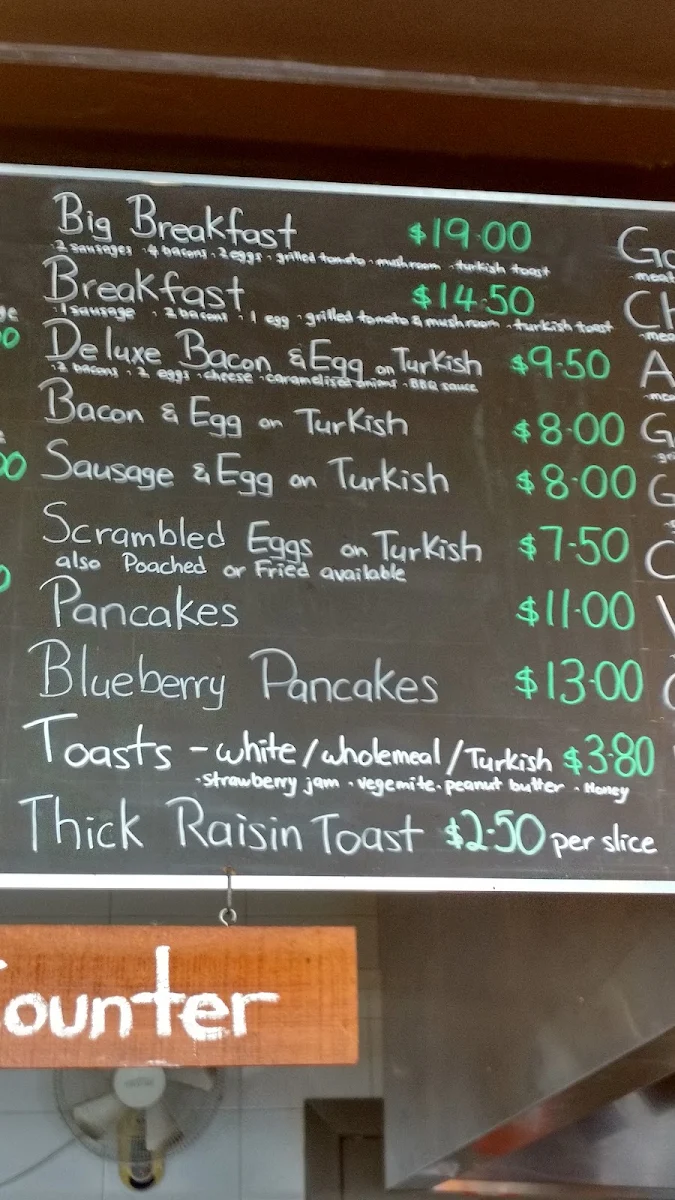 Big Breakfast $19.00
·2 sausages ·4 bacons ·2 eggs · grilled tomato · mushroom · turkish toast
Breakfast $14.50
·1 sausage · 2 bacons · 1 egg · grilled tomato & mushroom · turkish toast
Deluxe Bacon & Egg on Turkish $9.50
·2 bacons · 2 eggs ·cheese ·caramelised onions · BBQ sauce
Bacon & Egg on Turkish $8.00
Sausage & Egg on Turkish $8.00
Scrambled Eggs on Turkish $7.50
also Poached or Fried available
Pancakes $11.00
Blueberry Pancakes $13.00
Toasts - white/wholemeal/Turkish $3.80
·strawberry jam · vegemite · peanut butter · Honey
Thick Raisin Toast $2.50 per slice
ounter